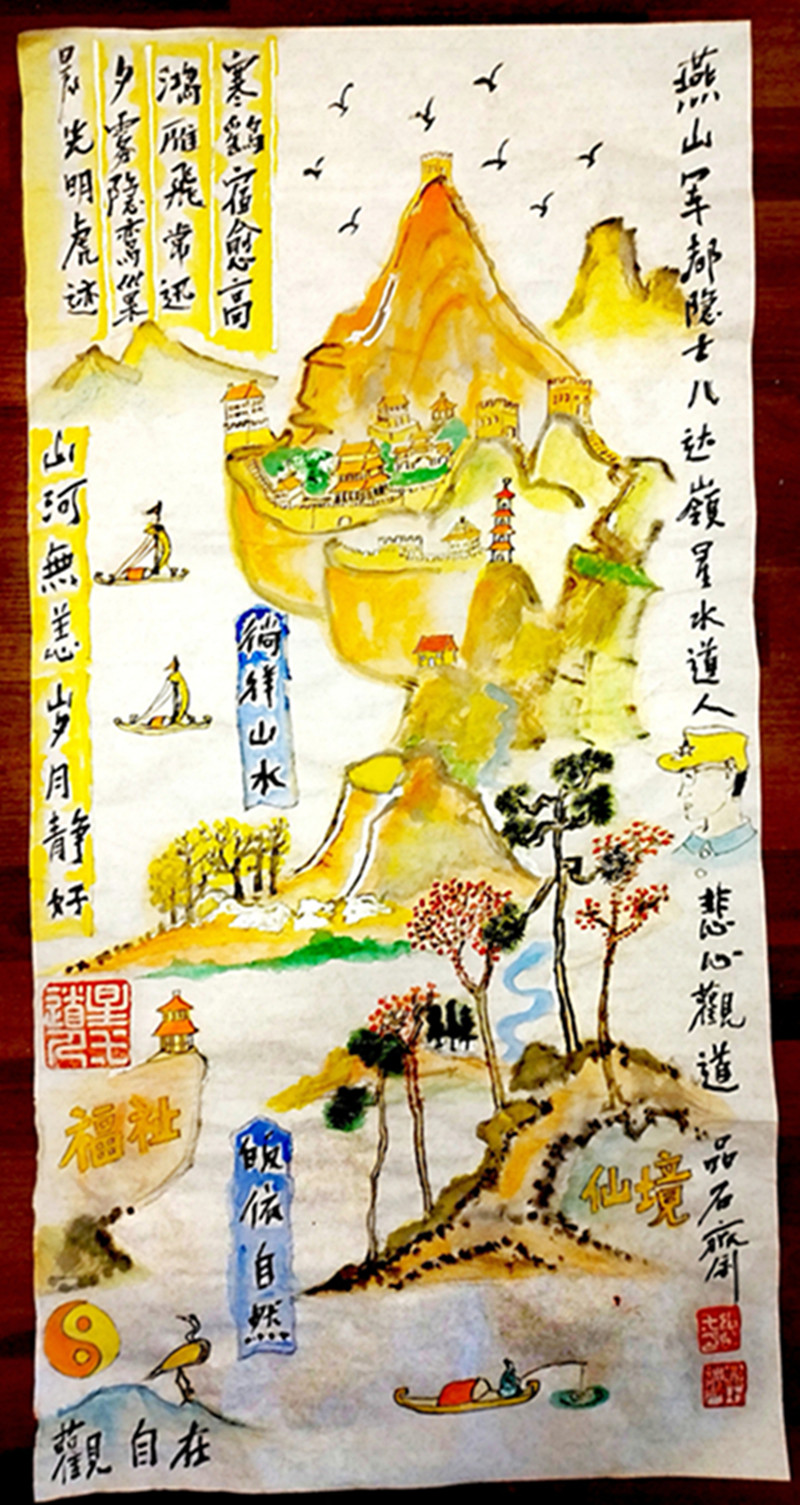 燕山军都隐士八达嶺星水道人
悲心觀道
品石齋
寒鶴宿愈高
鸿雁飛常迅
夕雾隐鸾巢
晨光明虎迹
山河無恙岁月静好
徜徉山水
星水道人
福祉
皈依自然
仙境
觀自在